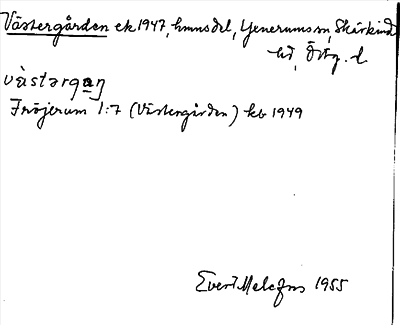 Västergården ek 1947, hmnsdel, Yenerums sn, Skärkind
hd, Östg. l.
västərgaŋ
Fröjerum 1:7 (Västergården) kb 1949
Evert Melefors 1955